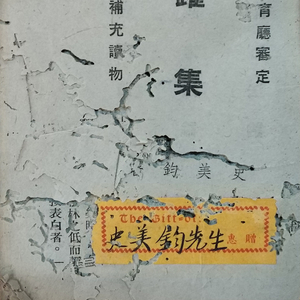 育廳審定
集
補充讀物
史美鈞
The Gift of
史美鈞先生惠贈
低而
表白者。